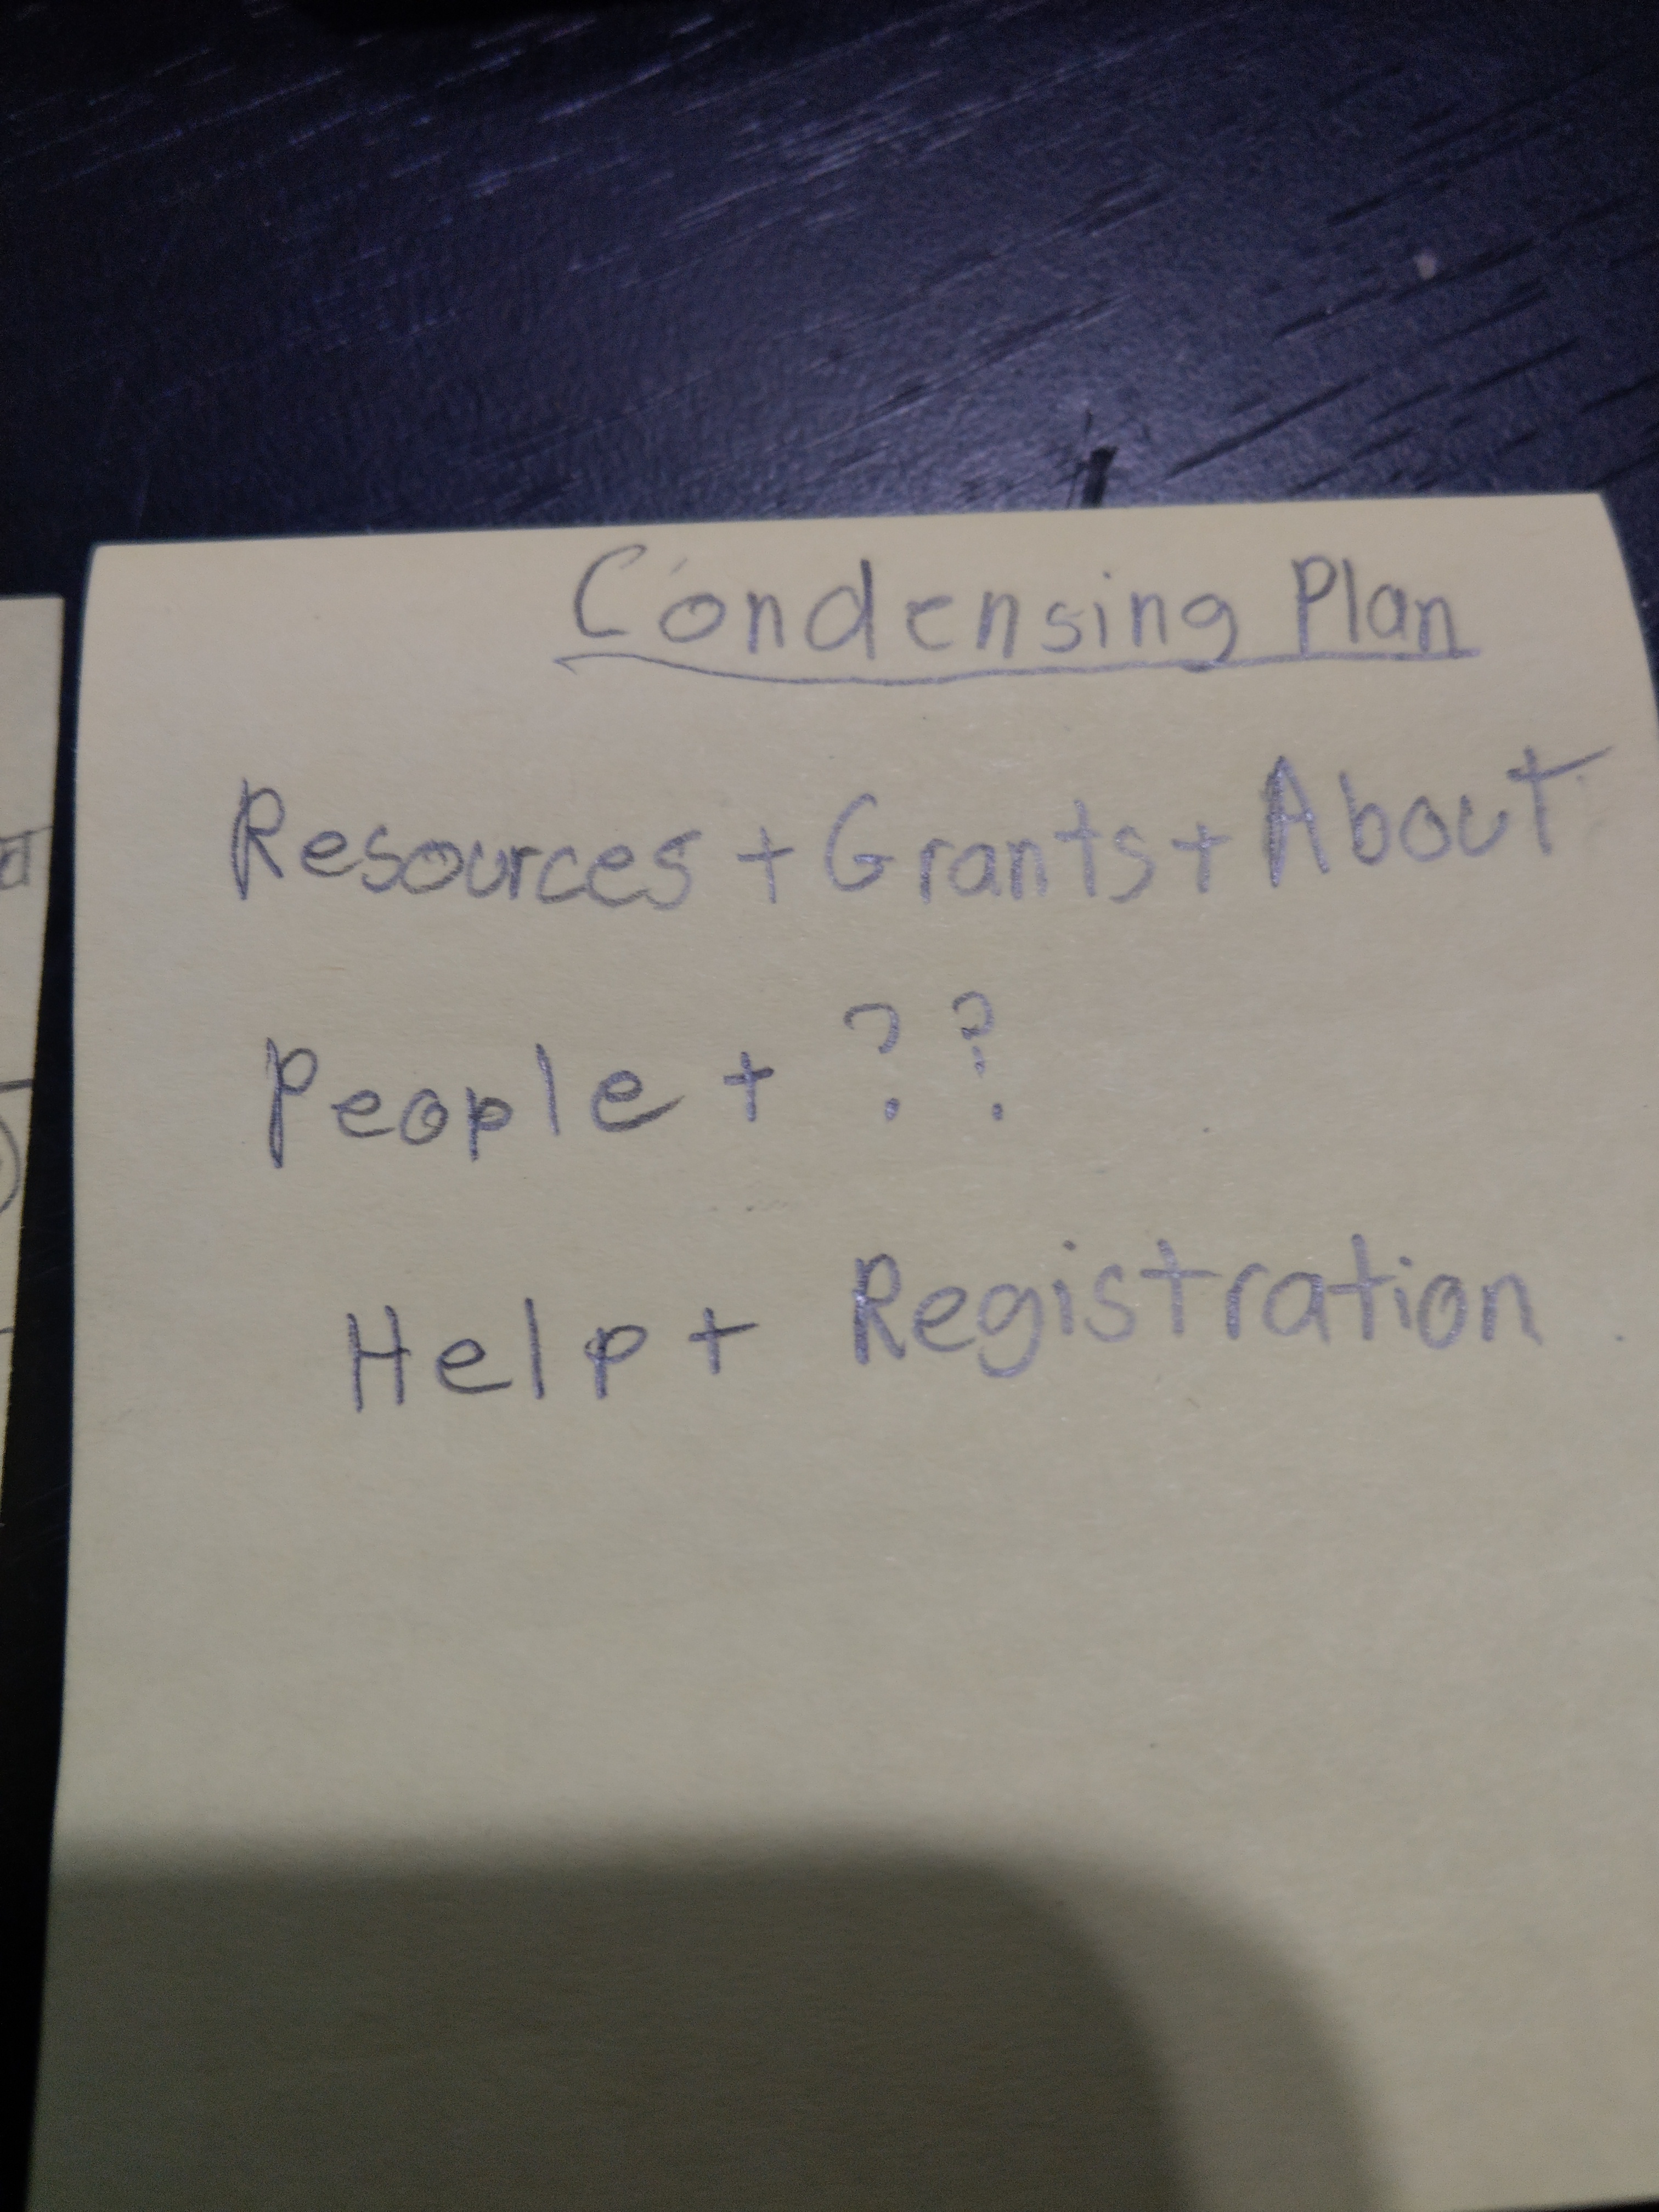 Condensing Plan
Resources + Grants + About
People + ??
Help + Registration